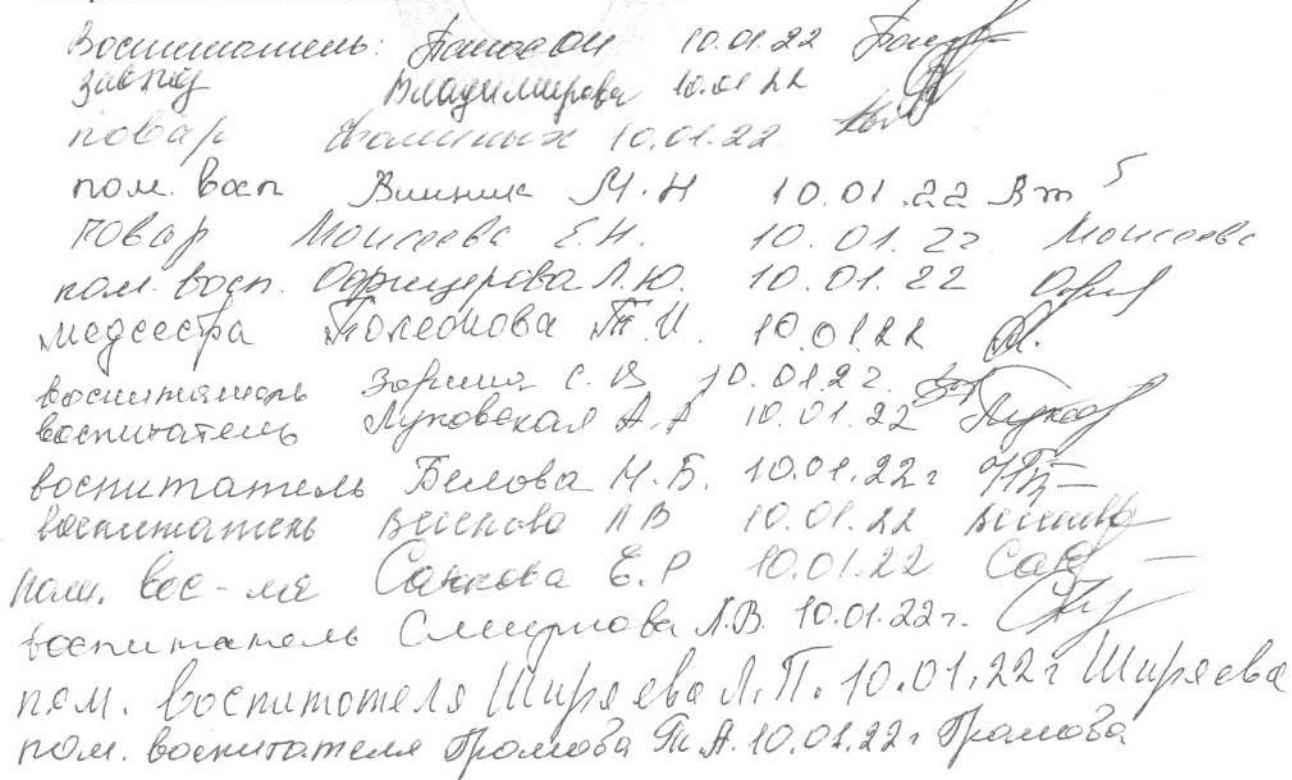 Воспитатель: 10.01.22
Завхоз Владимирова 10.01.22
повар Фоминых 10.01.22
пом. восп Винник М.Н 10.01.22
повар Моисеева Е.Н. 10.01.22 Моисеева
пом. восп. Офицерова Л.Ю. 10.01.22
медсестра Т.И. 10.01.22
воспитатель Зорина С.В 10.01.22.
воспитатель Луковская А.А 10.01.22
воспитатель Белова Н.Б. 10.01.22г
воспитатель 10.01.22
пом. вос-ля Сажнова Е.Р 10.01.22
воспитатель Смирнова Л.В. 10.01.22г.
пом. воспитотеля Ширяева Л.П. 10.01.22г Ширяева
пом. воспитателя Громова Т.А. 10.01.22г Громова